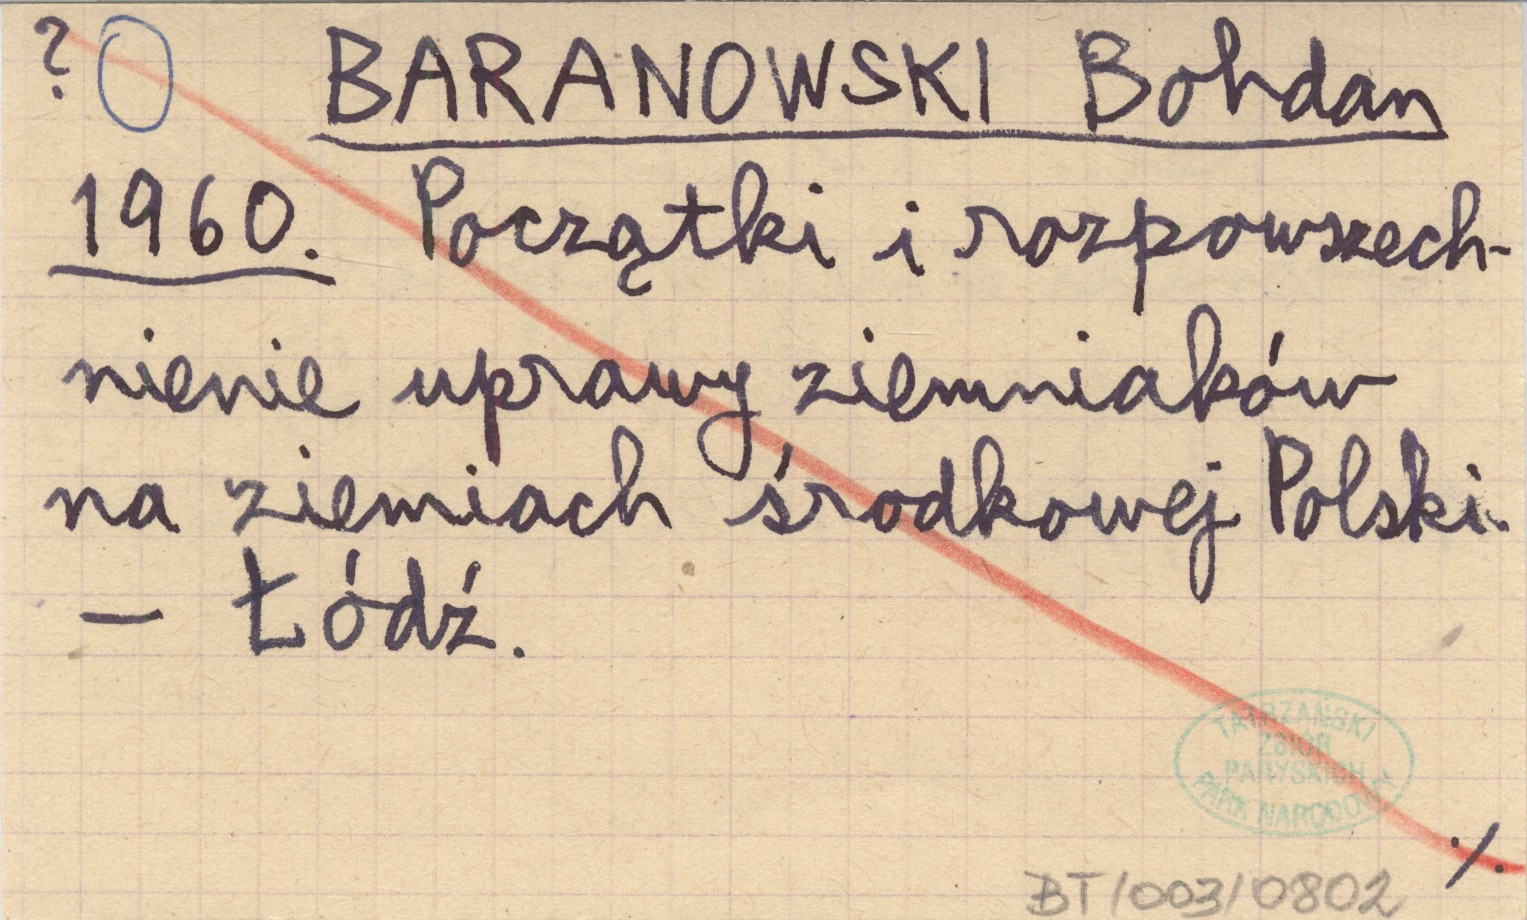 ? BARANOWSKI Bohdan
1960. Początki i rozpowszech-
nienie uprawy ziemniaków
na ziemiach środkowej Polski.
— Łódź.
TATRZAŃSKI
ZBIÓR
PARYSKICH
PARK NARODOWY
./.
BT/003/0802